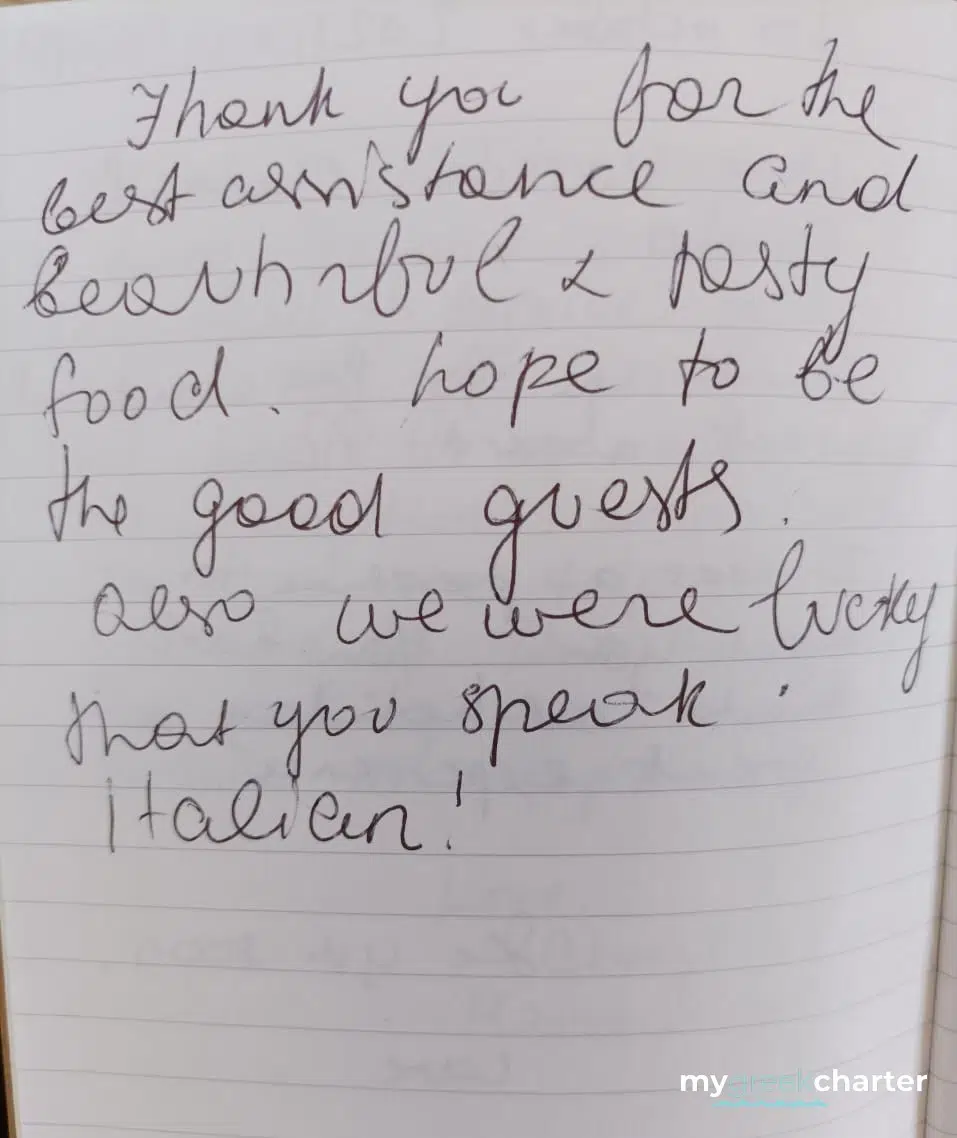 Thank you for the
best assistance and
beautiful & tasty
food. hope to be
the good guests.
also we were lucky
that you speak
italian!
mygreekcharter